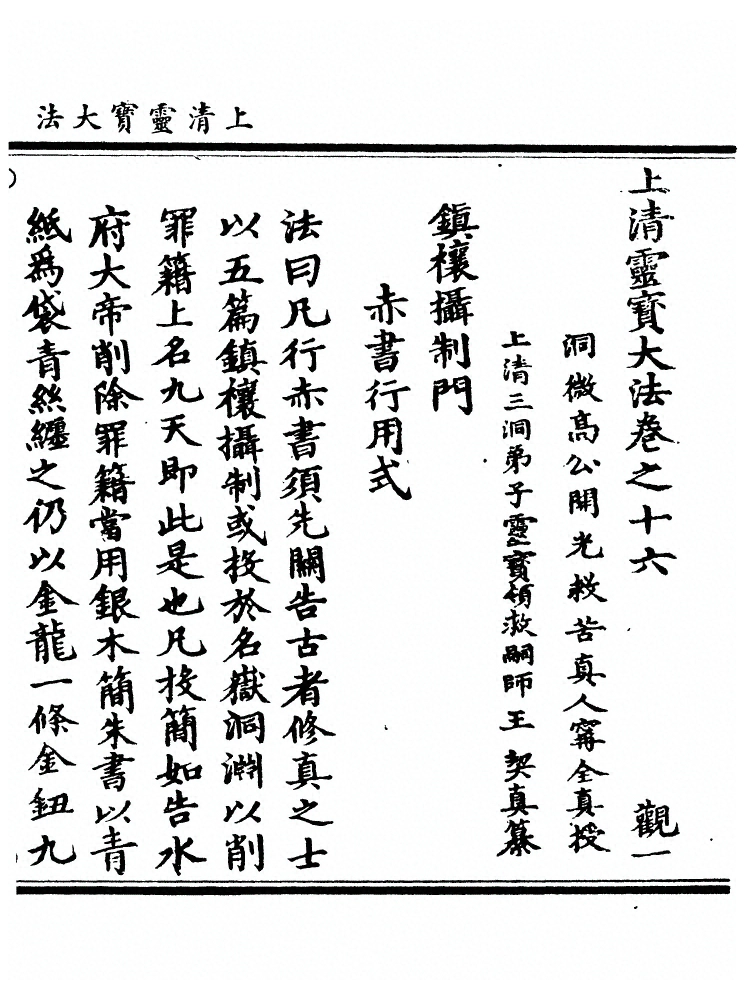 上清靈寶大法
上清靈寶大法卷之十六 觀一
洞微高公開光救苦真人甯全真授
上清三洞弟子靈寶領教嗣師王 契真纂
鎮禳攝制門
赤書行用式
法曰凡行赤書須先關告古者修真之士
以五篇鎮禳攝制或投於名嶽洞淵以削
罪籍上名九天即此是也凡投簡如告水
府大帝削除罪籍當用銀木簡朱書以青
紙爲袋青絲纏之仍以金龍一條金鈕九